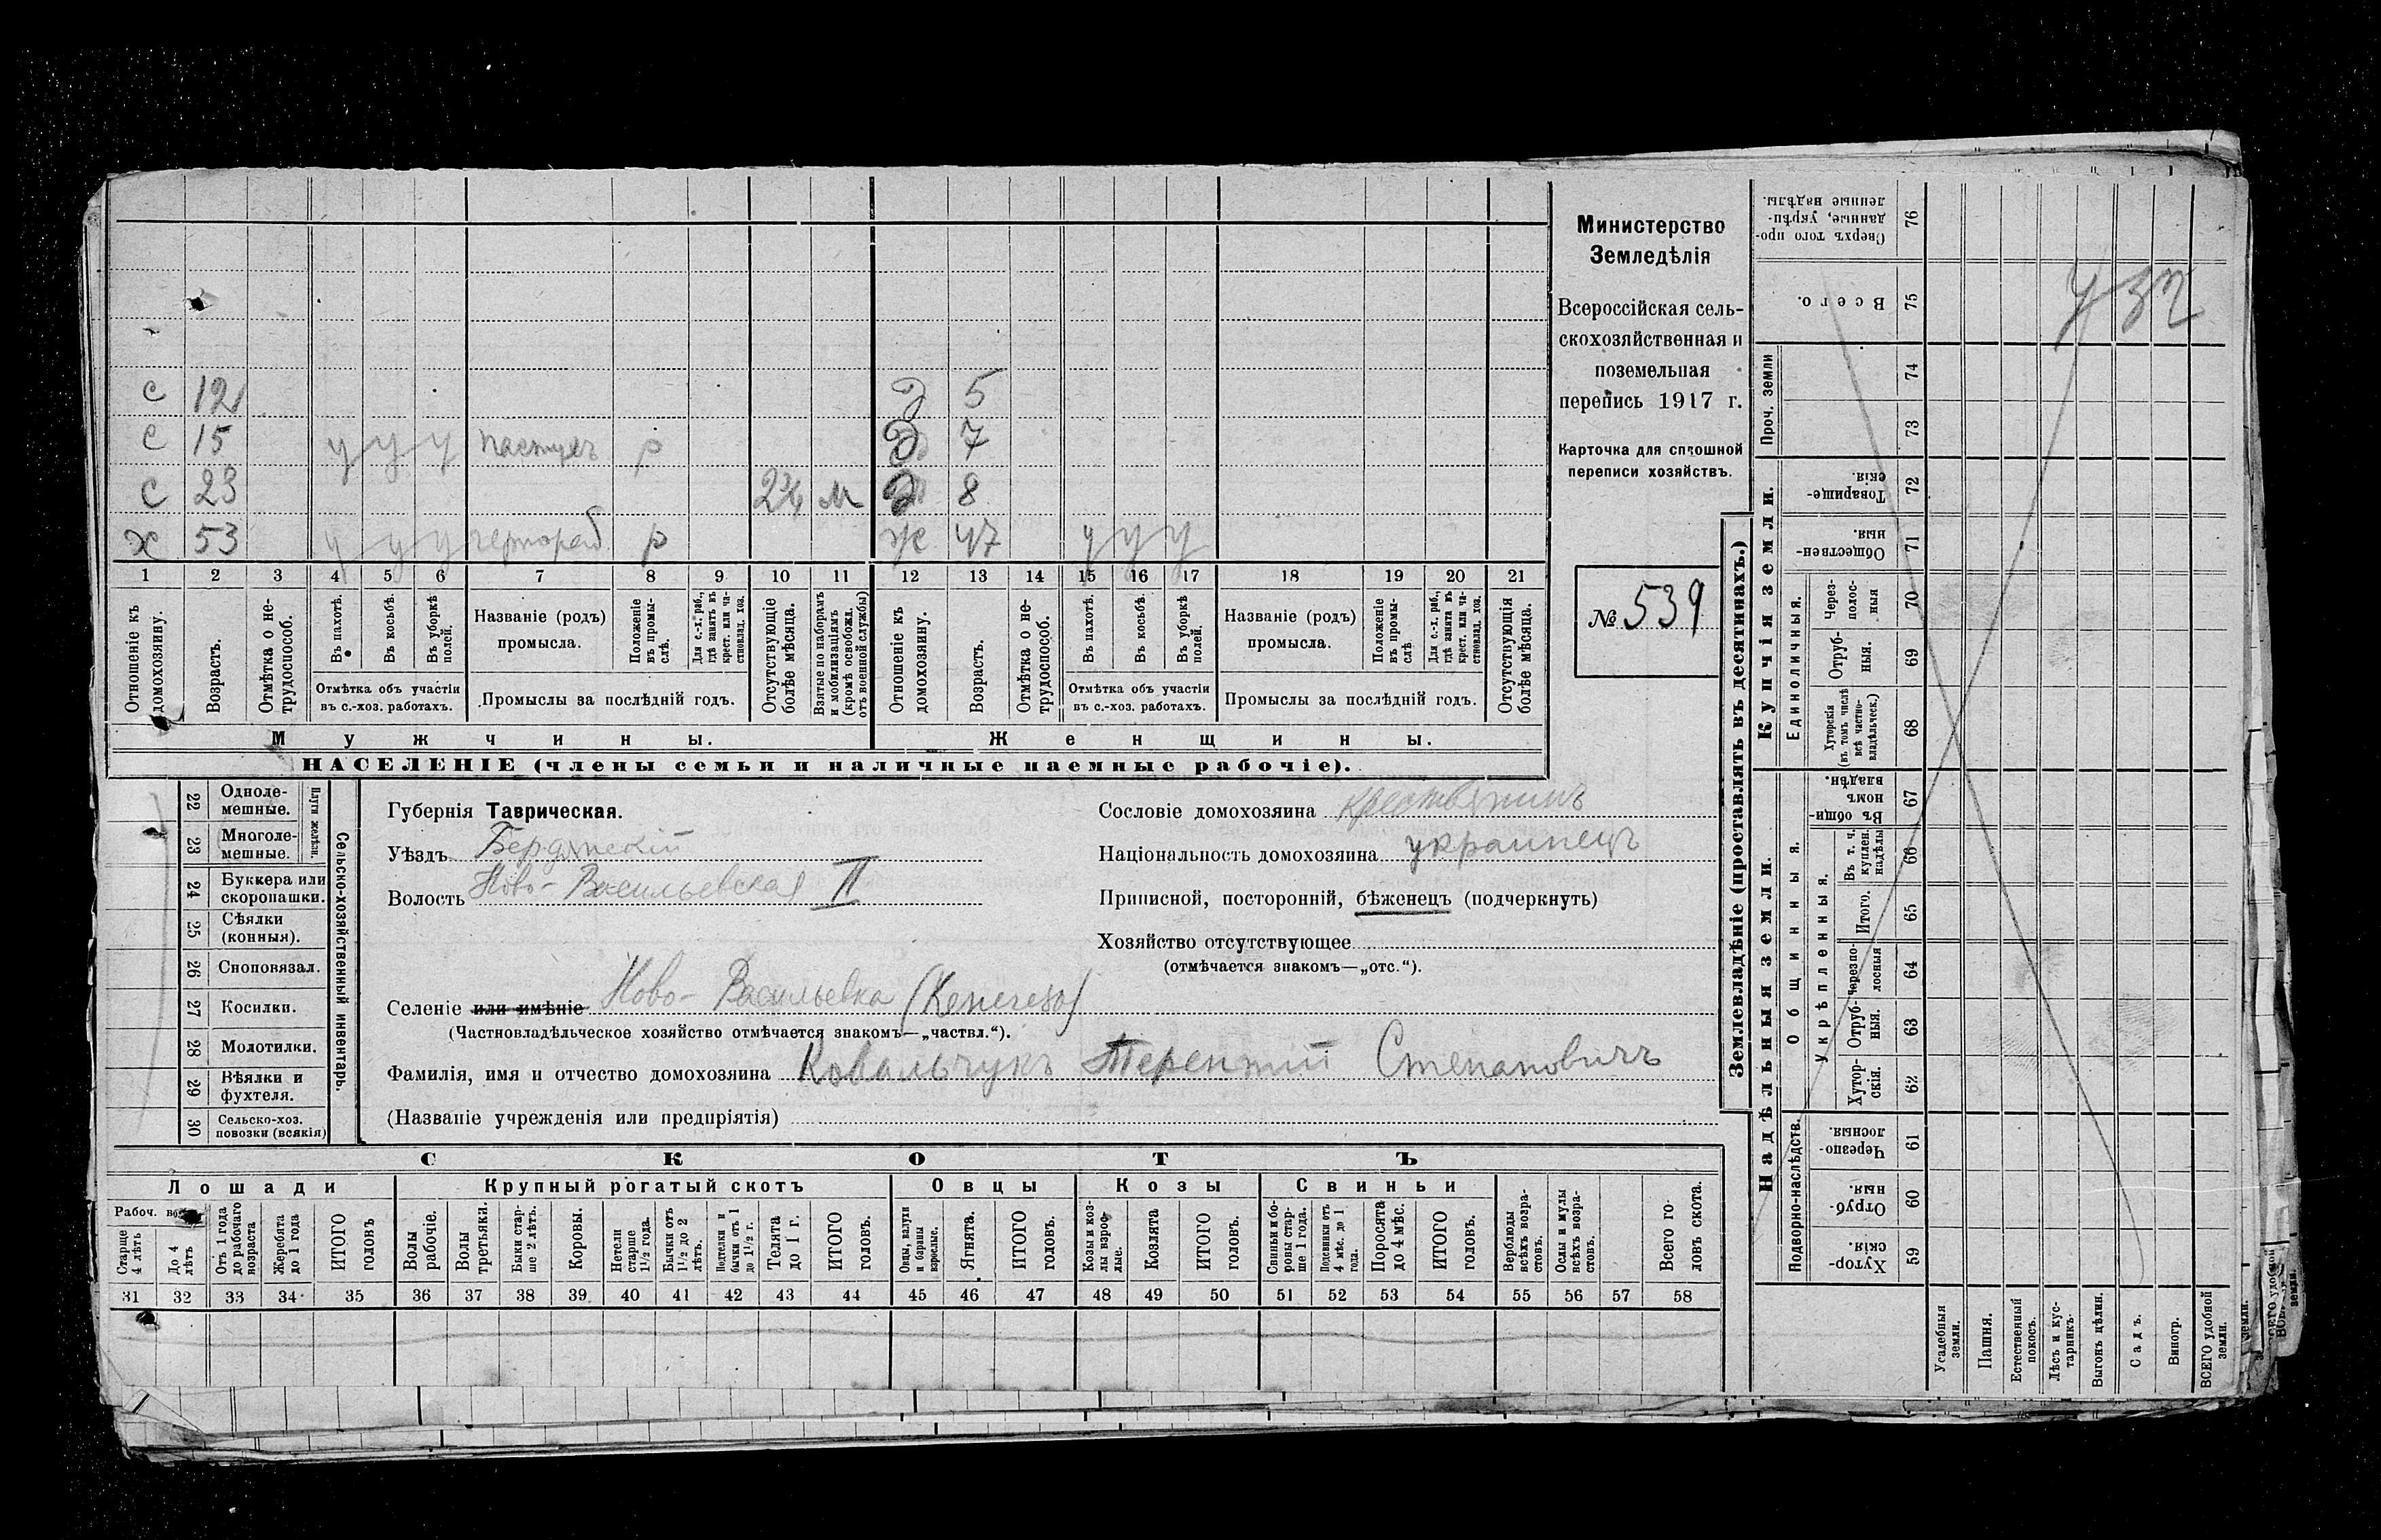 с 12 д 5
с 15 у у у пастухъ р д 7
с 23 м д 8
х 53 у у у чернораб р ж 47 у у у
1 2 3 4 5 6 7 8 9 10 11 12 13 14 15 16 17 18 19 20 21
Отношеніе къ домохозяину.
Возрастъ.
Отмѣтка о не-
трудоспособ.
Въ пахотѣ.
Въ косьбѣ.
Въ уборкѣ
полей.
Отмѣтка объ участіи
въ с.-хоз. работахъ.
Названіе (родъ)
промысла.
Положеніе
въ промы-
слѣ.
Для с.-х. раб.,
гдѣ занятъ въ
крест. или ча-
стновлад. хоз.
Промыслы за послѣдній годъ.
Отсутствующіе
болѣе мѣсяца.
Взятые по наборамъ
и мобилизаціямъ
(кромѣ освобожд.
отъ военной службы)
Отношеніе къ
домохозяину.
Возрастъ.
Отмѣтка о не-
трудоспособ.
Въ пахотѣ.
Въ косьбѣ.
Въ уборкѣ
полей.
Отмѣтка объ участіи
въ с.-хоз. работахъ.
Названіе (родъ)
промысла.
Положеніе
въ промы-
слѣ
Для с.-х. раб.,
гдѣ занята въ
крест. или ча-
стновлад. хоз.
Промыслы за послѣдній годъ.
Отсутствующія
болѣе мѣсяца.
Мужчины.
Женщины.
НАСЕЛЕНІЕ (члены семьи и наличные наемные рабочіе).
Министерство
Земледѣлія
Всероссійская сель-
скохозяйственная и
поземельная
перепись 1917 г.
Карточка для сплошной
переписи хозяйствъ.
№ 539
22 Одноле-
мешные.
23 Многоле-
мешные.
Плуги желѣзн.
24 Буккера или
скоропашки.
25 Сѣялки
(конныя).
26 Сноповязал.
27 Косилки.
28 Молотилки.
29 Вѣялки и
фухтеля.
30 Сельско-хоз.
повозки (всякія)
Сельско-хозяйственный инвентарь.
Губернія Таврическая.
Уѣздъ Бердянскій
Волость Ново-Васильевская II
Селеніе или имѣніе Ново-Васильевка
(Частновладѣльческое хозяйство отмѣчается знакомъ—„частвл.“).
Фамилія, имя и отчество домохозяина Ковальчукъ Терентій Степановичъ
(Названіе учрежденія или предпріятія)
Сословіе домохозяина крестьянинъ
Національность домохозяина украинецъ
Приписной, посторонній, бѣженецъ (подчеркнуть)
Хозяйство отсутствующее
(отмѣчается знакомъ—„отс.“).
СКОТЪ
Лошади
Крупный рогатый скотъ
Овцы
Козы
Свиньи
Рабоч.
Старше
4 лѣтъ
До 4
лѣтъ
Отъ 1 года
до рабочаго
возраста
Жеребята
до 1 года
ИТОГО
головъ
Волы
рабочіе.
Волы
третьяки.
Быки стар-
ше 2 лѣтъ.
Коровы.
Нетели
старше
1½ года.
Бычки отъ
1½ до 2
лѣтъ.
Подтелки и
бычки отъ 1
до 1½ г.
Телята
до 1 г.
ИТОГО
головъ.
Овцы, валухи
и бараны
взрослые.
Ягнята.
ИТОГО
головъ.
Козы и коз-
лы взрос-
лые.
Козлята
ИТОГО
головъ.
Свиньи и бо-
ровы стар-
ше 1 года.
Подсвинки отъ
4 мѣс. до 1
года.
Поросята
до 4 мѣс.
ИТОГО
головъ.
Верблюды
всѣхъ возра-
стовъ.
Ослы и мулы
всѣхъ возра-
стовъ.
Всего го-
ловъ скота.
31 32 33 34 35 36 37 38 39 40 41 42 43 44 45 46 47 48 49 50 51 52 53 54 55 56 57 58
Землевладѣніе (проставлять въ десятинахъ.)
Надѣльныя земли.
Купчія земли.
Проч. земли
Подворно-наслѣдств.
Общинныя.
Укрѣпленныя.
Единоличныя.
Сверхъ того про-
данные, укрѣп-
ленные надѣлы. 76
Всего. 75
74
73
Товарище-
скія 72
Обществен-
ныя. 71
Через-
полос-
ныя 70
Отруб-
ныя. 69
Хуторскія
(въ томъ числѣ
всѣ частно-
владѣльческ.) 68
Въ общи-
номъ
владѣн. 67
Въ т. ч.
куплен.
надѣлы 66
Итого. 65
Черезпо-
лосныя 64
Отруб-
ныя. 63
Хутор-
скія. 62
Черезпо-
лосныя. 61
Отруб-
ныя. 60
Хутор-
скія. 59
Усадебныя
земли.
Пашня.
Естественный
покосъ.
Лѣсъ и кус-
тарникъ.
Выгонъ цѣлин.
Садъ.
Виногр.
ВСЕГО удобной
земли.